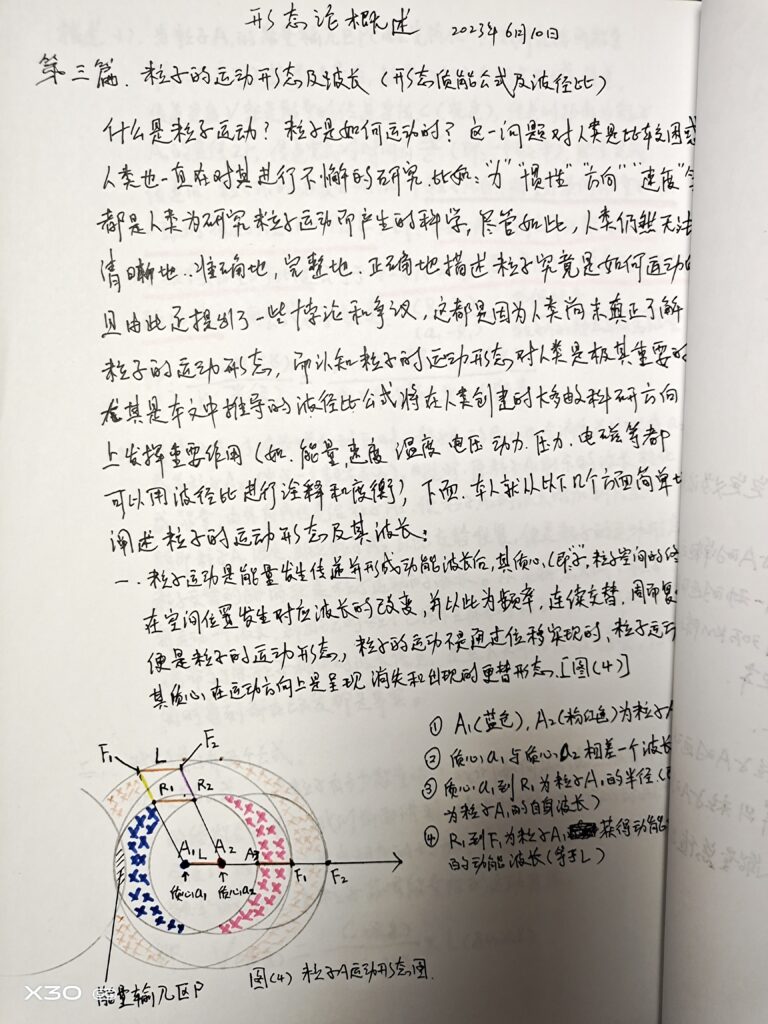 形态论概述 2023年6月10日
第三篇. 粒子的运动形态及波长（形态质能公式及波径比）
什么是粒子运动？粒子是如何运动的？这一问题对人类是比较困惑
人类也一直在对其进行不懈的研究. 比如："力""惯性""方向""速度"
都是人类为研究粒子运动而产生的科学, 尽管如此, 人类仍然无法
清晰地. 准确地, 完整地. 正确地描述粒子究竟是如何运动的
且由此还提出了一些悖论和争议, 这都是因为人类尚未真正了解
粒子的运动形态, 而认知粒子的运动形态对人类是极其重要的
尤其是本文中推导的波径比公式将在人类创建的大多数科研方向
上发挥重要作用（如. 能量, 速度 温度 电压 动力. 压力. 电磁等都
可以用波径比进行诠释和度衡）, 下面. 本人就从以下几个方面简单地
阐述粒子的运动形态及其波长:
一. 粒子运动是能量发生传递并形成动能波长后, 其质心（即 粒子空间的
在空间位置发生对应波长的改变, 并以此为频率, 连续交替. 周而复
便是粒子的运动形态, 粒子的运动不是通过位移实现的, 粒子运动
其质心在运动方向上是呈现 消失和出现的更替形态. [图(4)]
① A₁(蓝色), A₂(粉红色)为粒子A
② 质心a₁与质心a₂相差一个波长
③ 质心a₁到R₁为粒子A₁的半径.(
为粒子A₁的自身波长)
④ R₁到F₁为粒子A₁ 获得动能
的动能波长(等于L)
F₁ L F₂
R₁ R₂
A₁ L A₂ A F₁ F₂
质心a₁ 质心a₂
能量输入区P
图(4) 粒子A运动形态图.
X30